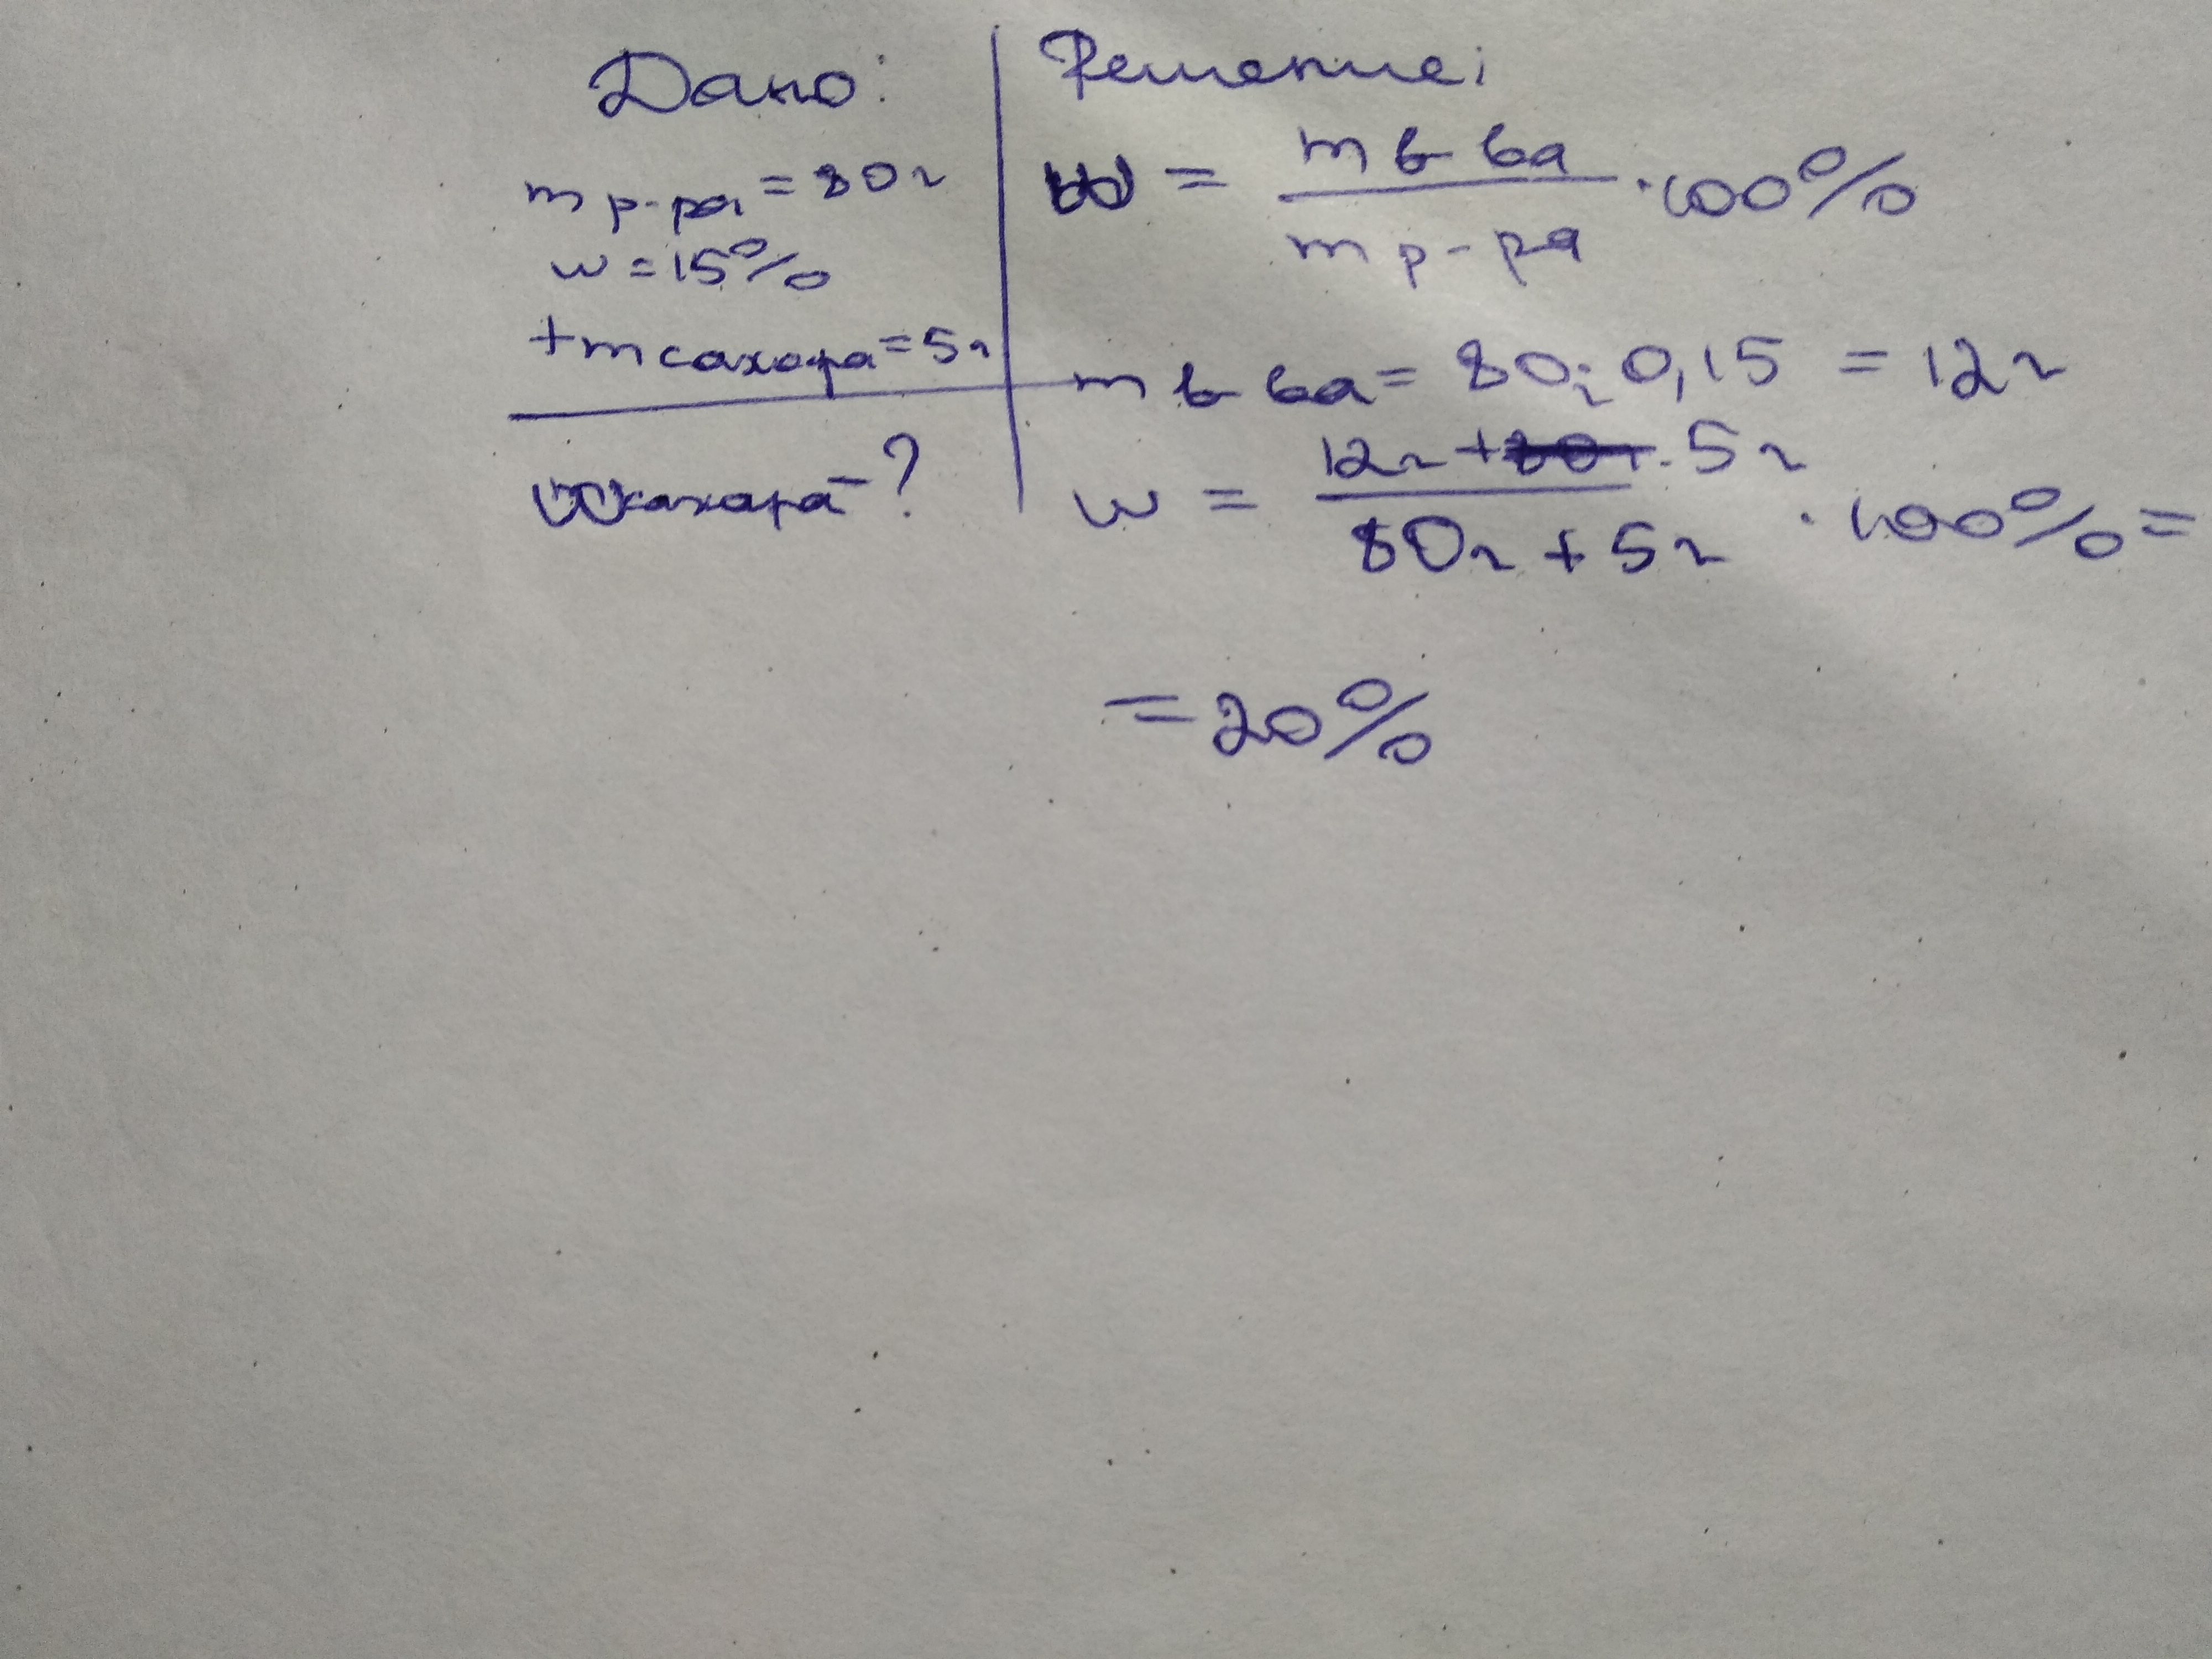 Дано:
m р-ра = 80г
w = 15%
+m сахара = 5г
w сахара - ?
Решение:
w = m в ва / m р-ра · 100%
m в ва = 80 · 0,15 = 12г
w = 12г + 5г / 80г + 5г · 100% =
= 20%